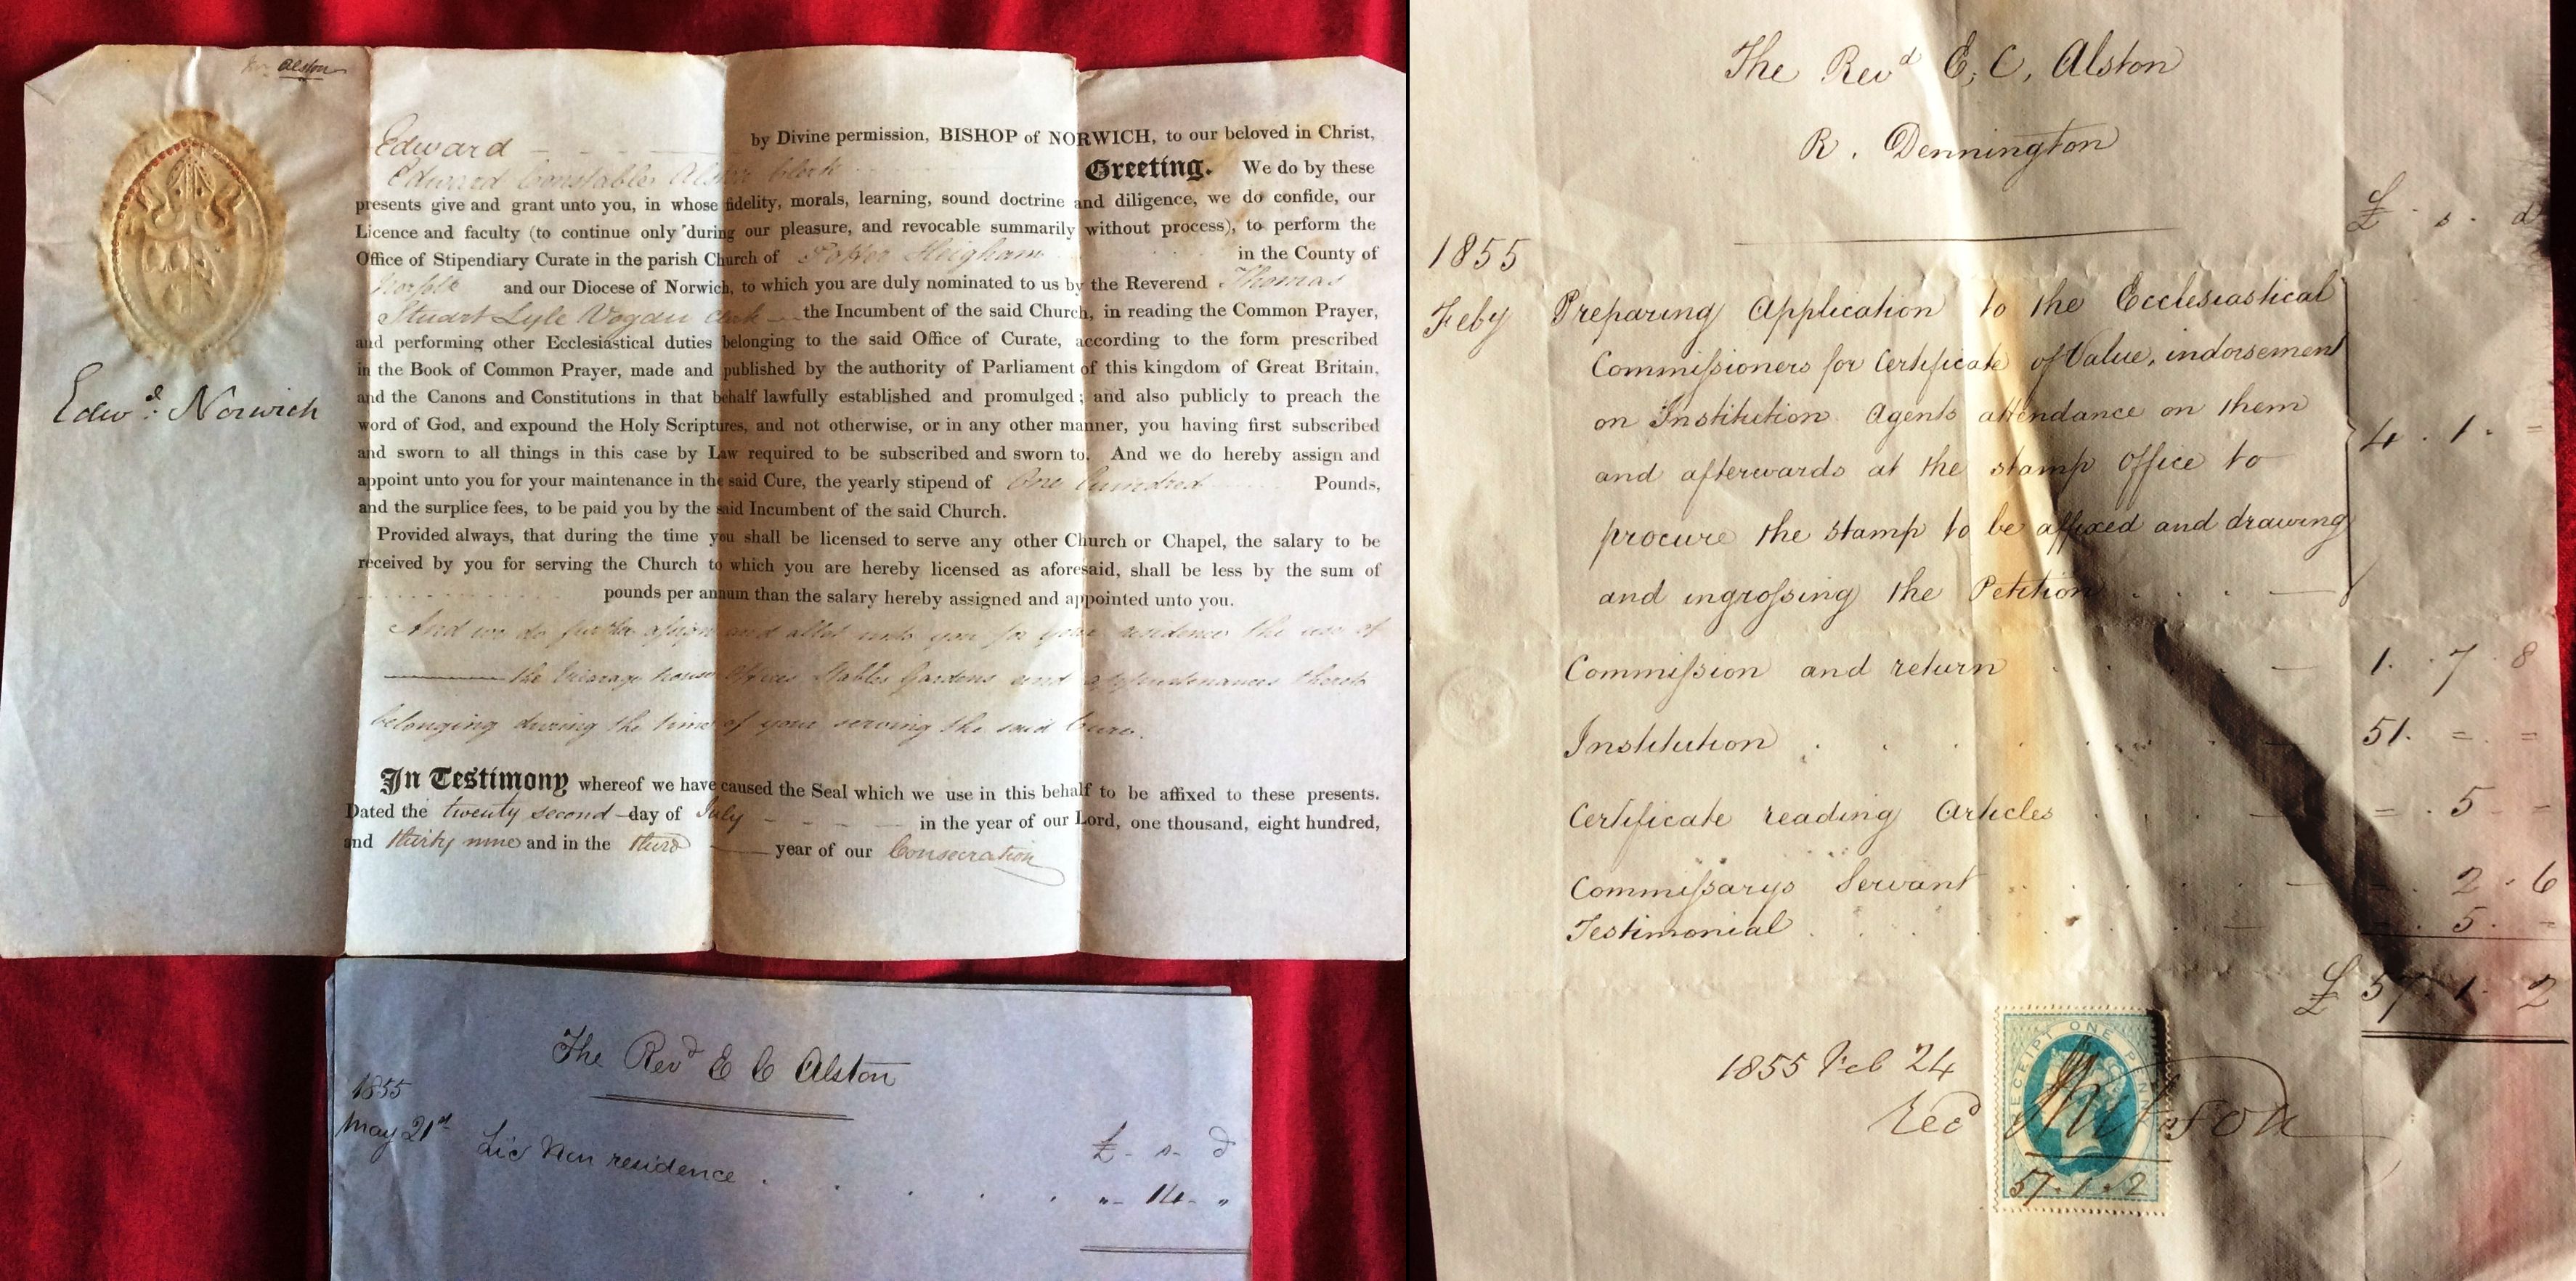 Alston
Edward by Divine permission, BISHOP of NORWICH, to our beloved in Christ,
Edward Constable Alston Clerk Greeting. We do by these
presents give and grant unto you, in whose fidelity, morals, learning, sound doctrine and diligence, we do confide, our
Licence and faculty (to continue only during our pleasure, and revocable summarily without process), to perform the
Office of Stipendiary Curate in the parish Church of Potter Heigham in the County of
Norfolk and our Diocese of Norwich, to which you are duly nominated to us by the Reverend Thomas
Stuart Lyle Vogan Clerk the Incumbent of the said Church, in reading the Common Prayer,
and performing other Ecclesiastical duties belonging to the said Office of Curate, according to the form prescribed
in the Book of Common Prayer, made and published by the authority of Parliament of this kingdom of Great Britain,
and the Canons and Constitutions in that behalf lawfully established and promulged; and also publicly to preach the
word of God, and expound the Holy Scriptures, and not otherwise, or in any other manner, you having first subscribed
and sworn to all things in this case by Law required to be subscribed and sworn to. And we do hereby assign and
appoint unto you for your maintenance in the said Cure, the yearly stipend of One hundred Pounds,
and the surplice fees, to be paid you by the said Incumbent of the said Church.
Provided always, that during the time you shall be licensed to serve any other Church or Chapel, the salary to be
received by you for serving the Church to which you are hereby licensed as aforesaid, shall be less by the sum of
pounds per annum than the salary hereby assigned and appointed unto you.
And we do further assign and allot unto you for your residence the use of
the Vicarage house Offices Stables Gardens and appurtenances thereto
belonging during the time of your serving the said Cure.
In Testimony whereof we have caused the Seal which we use in this behalf to be affixed to these presents.
Dated the twenty second day of July in the year of our Lord, one thousand, eight hundred,
and thirty nine and in the third year of our Consecration
Edwd: Norwich
The Revd E C Alston
1855
May 21st Lic Non residence
£ - s - d
" - 14 - "
The Revd E, C, Alston
R. Dennington
£ . s . d
1855
Feby Preparing Application to the Ecclesiastical
Commissioners for Certificate of Value, indorsement
on Institution Agents attendance on them
and afterwards at the stamp Office to
procure the stamp to be affixed and drawing
and ingrossing the Petition 4 . 1 . =
Commission and return 1 . 7 . 8
Institution 51 . = . =
Certificate reading Articles = . 5 . =
Commissarys Servant 2 . 6
Testimonial 5 . -
£ 57 . 1 . 2
1855 Feb 24
Recd
RECEIPT ONE PENNY
57 . 1 . 2